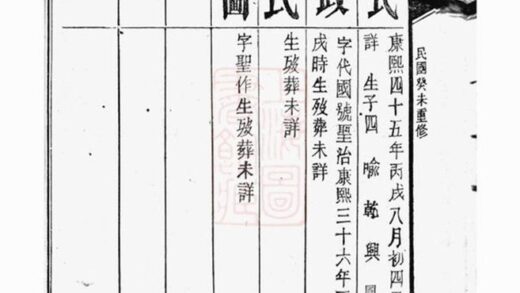 民國癸未重修
民
康熙四十五年丙戌八月初四
詳 生子四 喻 乾 興
政
字代國號聖治康熙三十六年
戌時生歿葬未詳
民
生歿葬未詳
圖
字聖作生歿葬未詳